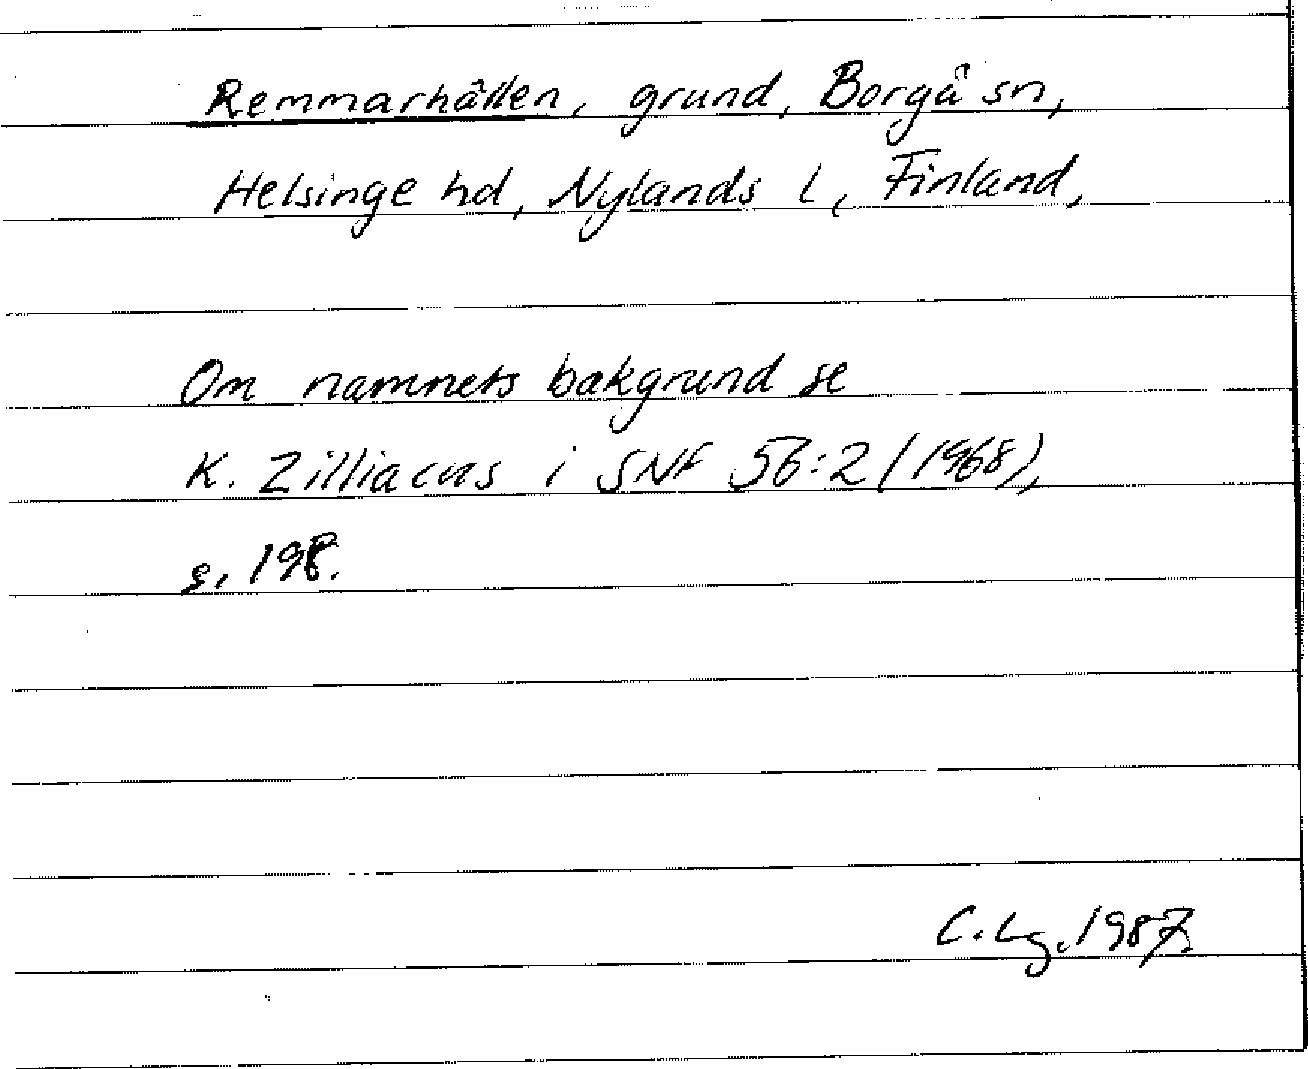 Remmarhällen, grund, Borgå sn,
Helsinge hd, Nylands l, Finland,
Om namnets bakgrund se
K. Zilliacus i SNF 56:2 (1968),
s. 198.
C. Lg. 1987